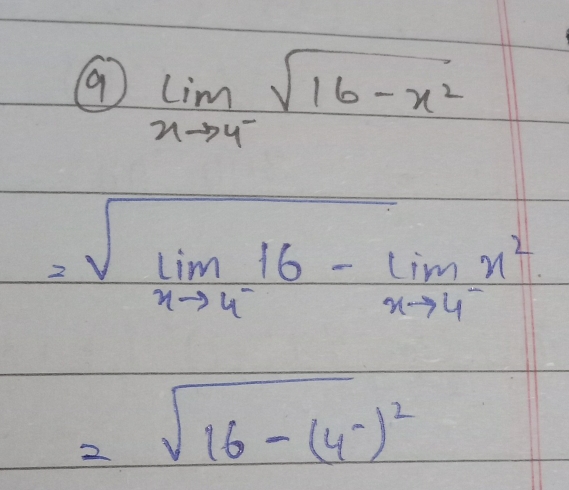 (9) lim x→4⁻ √(16 - x²)
= √(lim x→4⁻ 16 - lim x→4⁻ x²)
= √(16 - (4⁻)²)